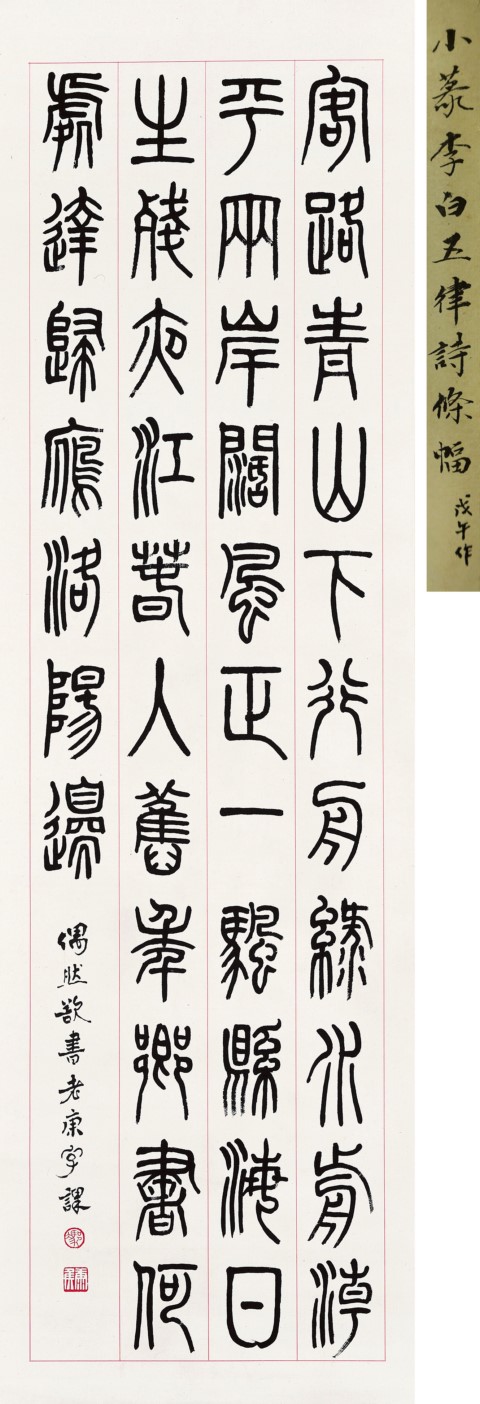 小篆李白五律詩條幅
戊午作
客路青山下行舟綠水前潮
平兩岸闊風正一颿縣海日
生殘夜江萅入舊年鄉書何
處達歸雁洛陽邊
偶然欲書老康字課